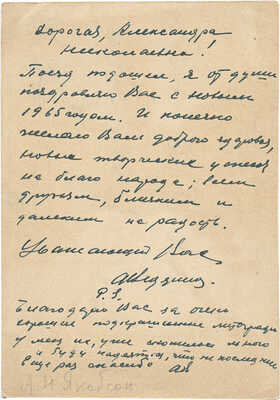 Дорогая, Александра
Николаевна!
Поезд подошел, я от души
поздравляю Вас с новым
1965 годом. И конечно
желаю Вам доброго здоровья,
новых творческих успехов
на благо народа; всем
друзьям, близким и
далеким не радость.
Уважающий Вас,
P.S.
Благодарю Вас за очень
хорошие подаренные литографии
у меня их, уже скопилось много
и буду надеяться, что не последние
еще раз спасибо
А Н Якобсон